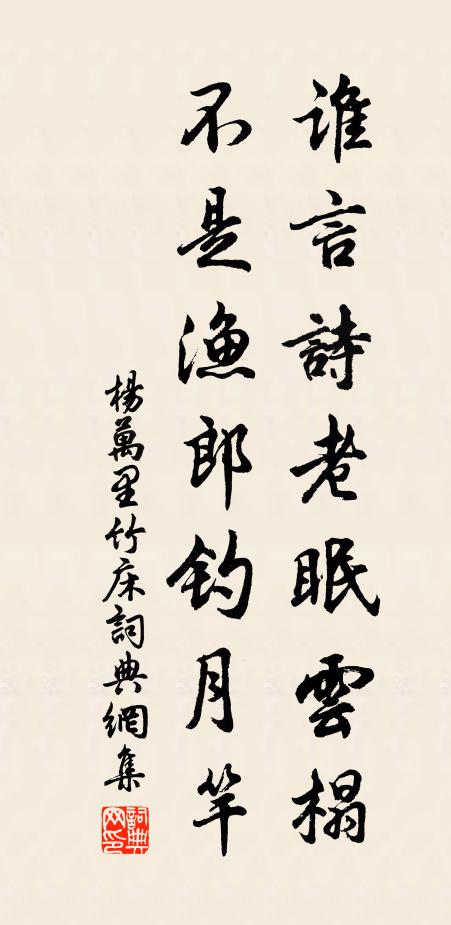 谁言詩老眠雲榻
不是漁郎釣月竿
楊萬里竹床詞典網集
詞典
网印